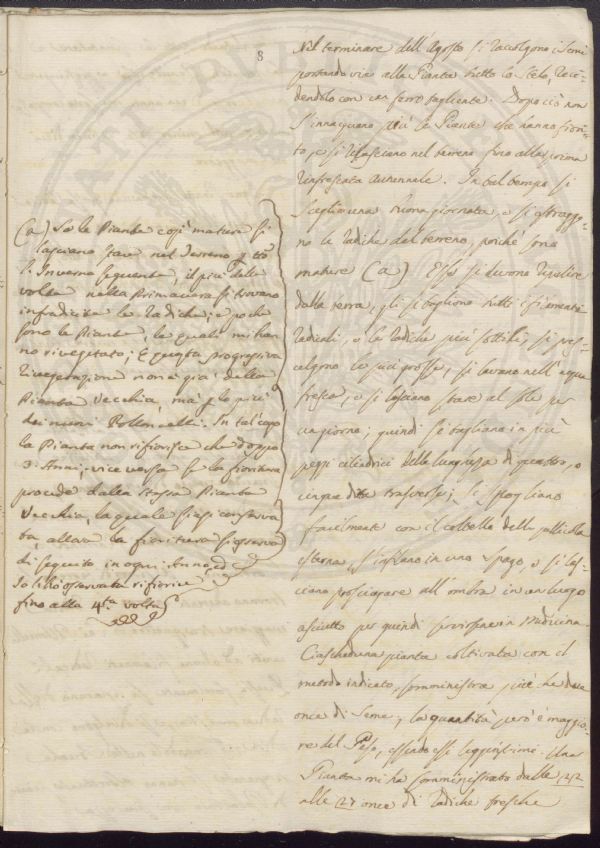 8
Nel terminare dell'Agosto si raccolgono i Semi
portando via alla Pianta tutto lo Stelo, reci-
dendolo con un ferro tagliente. Dopo ciò non
s'innacquano più le Piante che hanno fiori-
to, e si rilasciano nel terreno fino alla prima
rinfrescata Autunnale. In tal tempo si
sceglie una buona giornata, e si estraggo-
no le radiche del terreno, poichè sono
mature (a) Esse si devono ripulire
dalla terra, gli si tagliono tutti i filamenti
radicali, e le radiche più sottili; si pres-
celgono le più grosse, si lavano nell'acqua
fresca, e si lasciano stare al sole per
un giorno; quindi si tagliano in più
pezzi cilindrici della lunghezza di quattro, o
cinque dita trasverse; si spogliano
facilmente con il coltello della pellicola
esterna, s'infilano in uno spago, e si las-
ciano prosciugare all'ombra in un luogo
asciutto per quindi servirsene in Medicina.
Ciascheduna pianta coltivata con il
metodo indicato, somministra più che due
once di Seme; la quantità però è maggio-
re del Peso, essendo essi leggerissimi. Una
Pianta mi ha somministrato dalle
alle 27 once di radiche fresche
(a) Se le Piante così mature si
lasciano stare nel Terreno p tto
l'Inverno seguente, il più delle
volte nella Primavera si trovano
infradicite le radiche; e poche
sono le Piante, le quali mi han-
no rivegetato; E questa progressiva
rivegetazione non è già della
Pianta Vecchia, mà p lo più
dei nuovi Polloncelli. In tal caso
la Pianta non rifiorisce che doppo
3. Anni, vice versa se la fioritura
procede dalla stessa Pianta
Vecchia, la quale siasi conserva-
ta, allora la fioritura si osserva
di seguito in ogni Anno, ed
Io l'hò osservata rifiorire
fino alla 4.ta volta